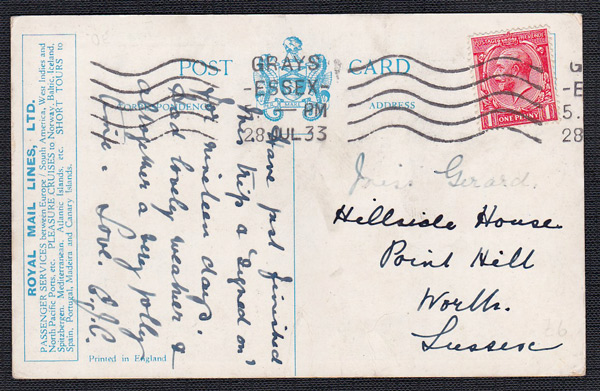 ROYAL MAIL LINES, LTD.
PASSENGER SERVICES between Europe / South America, West Indies and
North Pacific Ports, etc. PLEASURE CRUISES to Norway, Baltic, Iceland,
Spitzbergen, Mediterranean, Atlantic Islands, etc. SHORT TOURS to
Spain, Portugal, Madeira and Canary Islands.
POST CARD
CORRESPONDENCE
ADDRESS
GRAYS
-ESSEX-
PM
28 JUL 33
G
-E
5.
28
1 ONE PENNY 1
Have just finished
the trip a signed on'
for nineteen days'.
Had lovely weather &
altogether a very jolly
time. Love.
Miss Gerard.
Hillside House
Point Hill
Worth.
Sussex
Printed in England